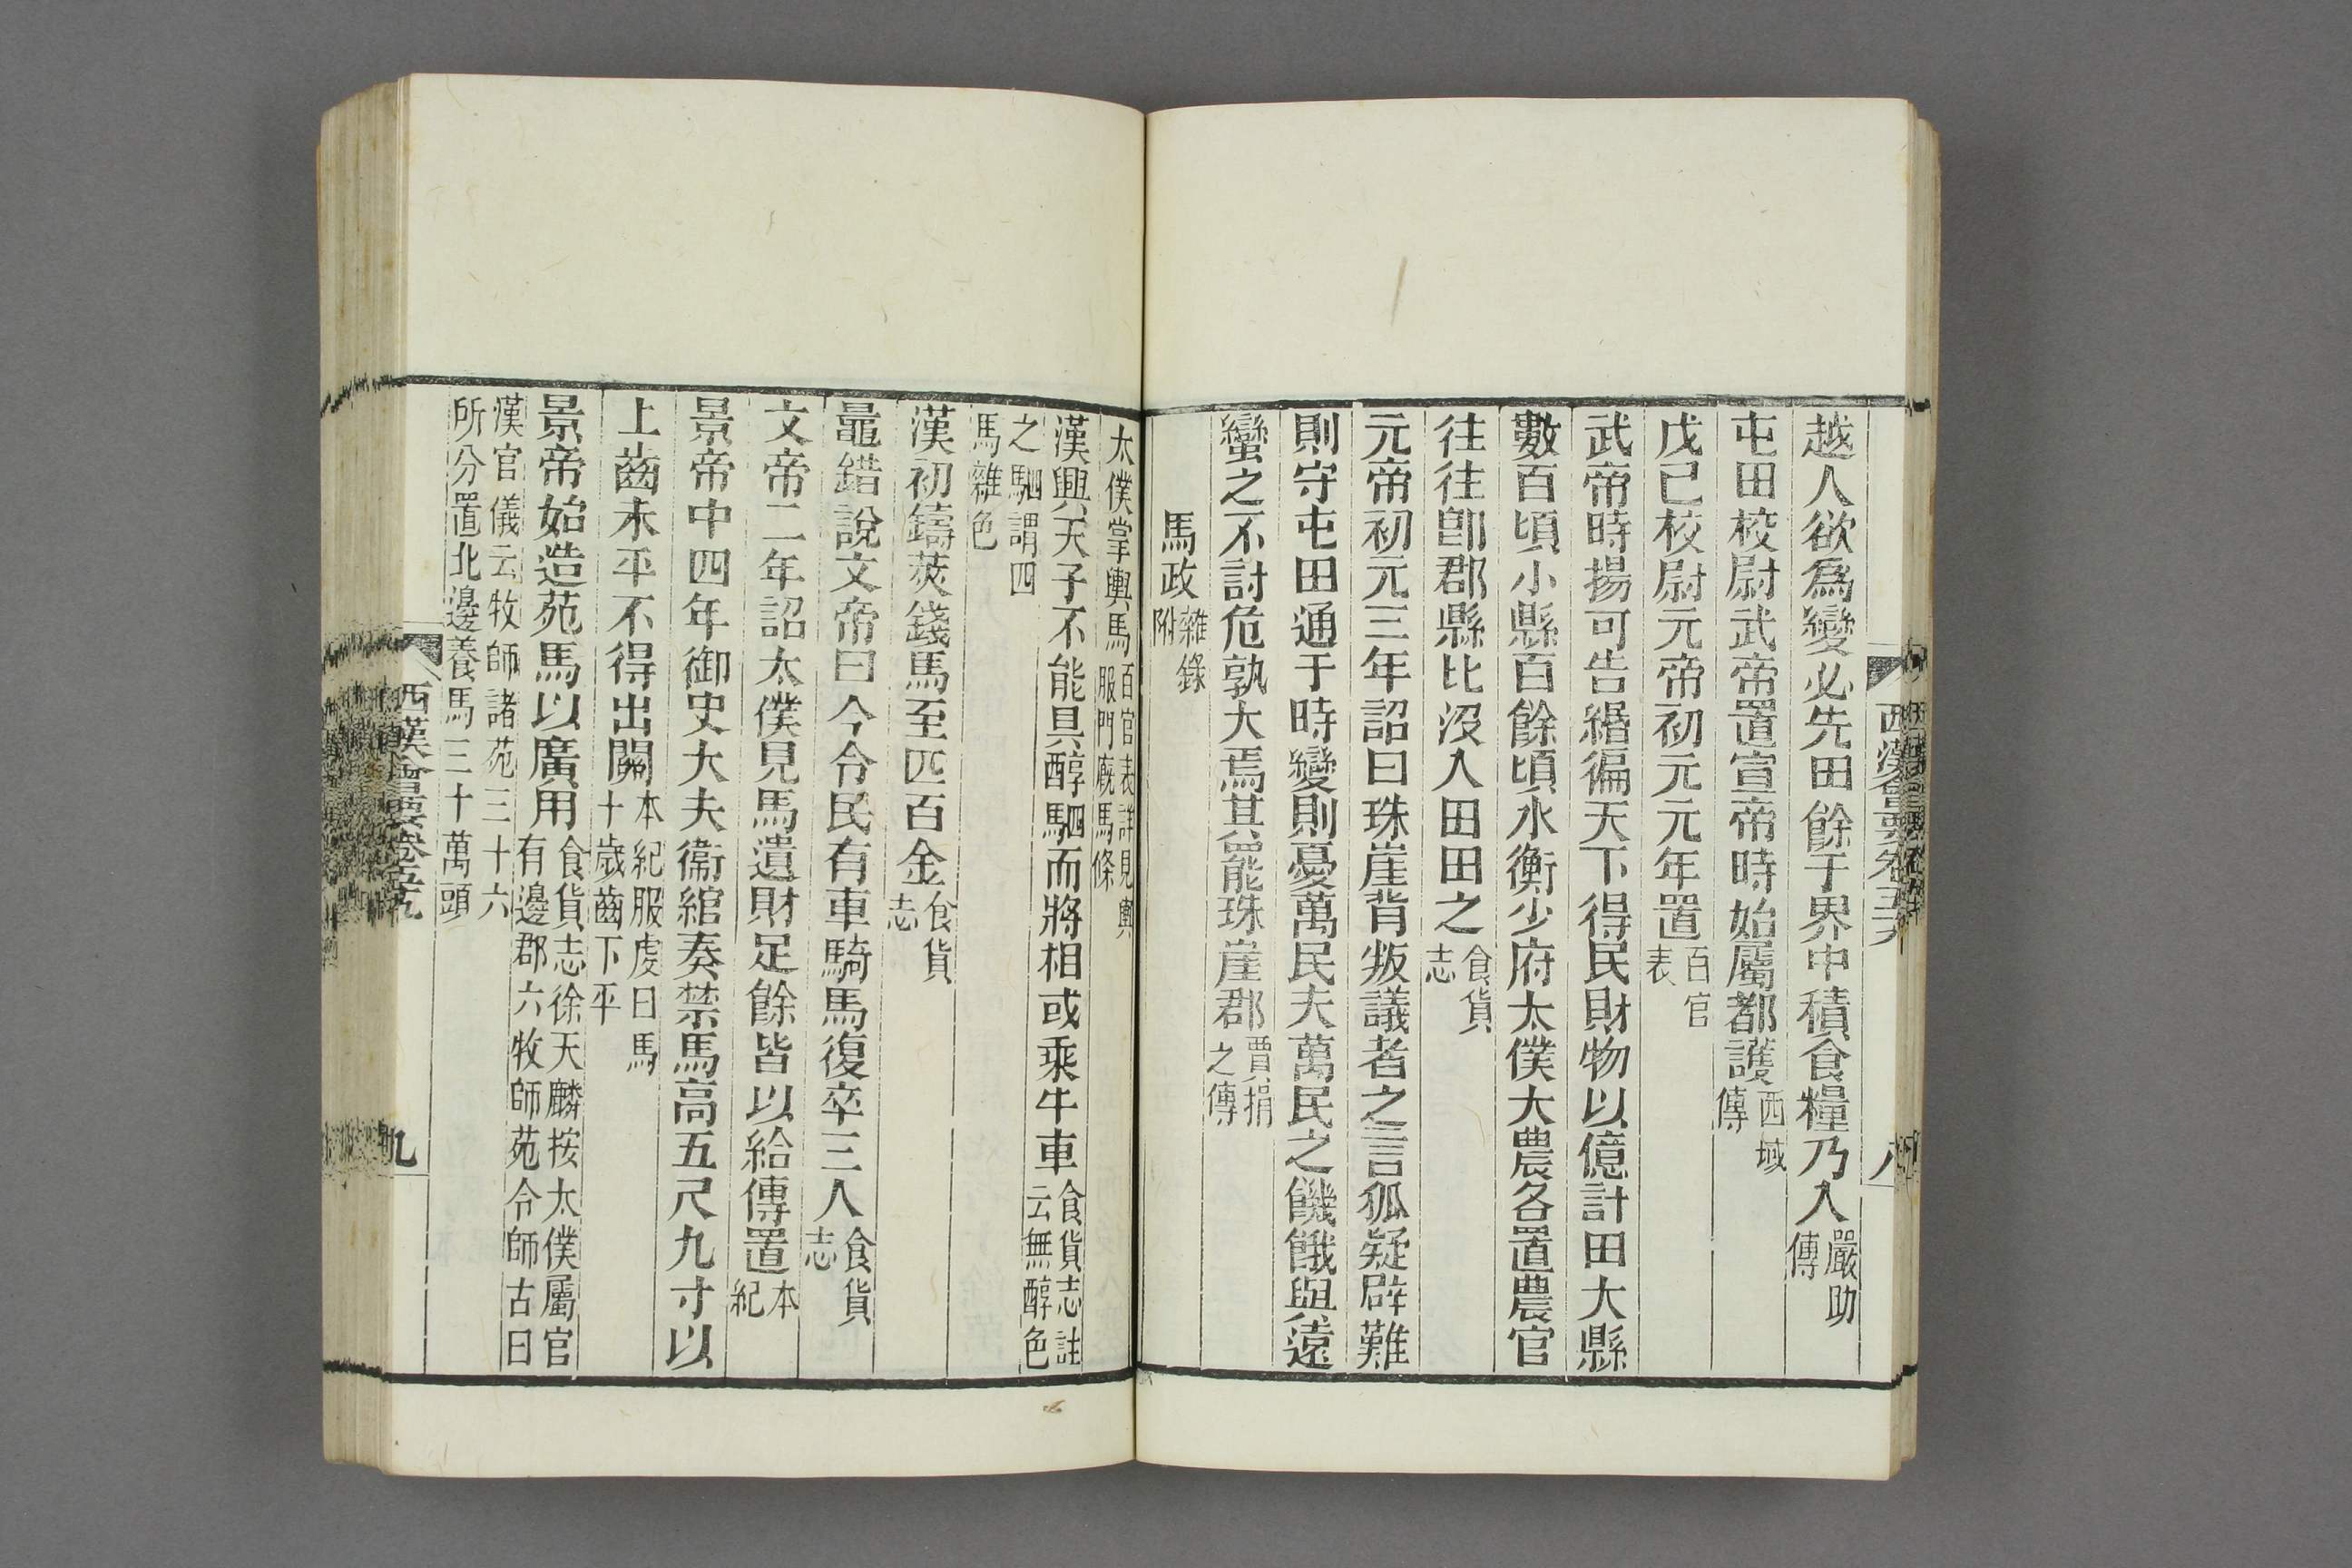 越人欲爲變必先田餘于界中積食糧乃入嚴助傳
屯田校尉武帝置宣帝時始屬都護西域傳
戊已校尉元帝初元元年置百官表
武帝時揚可告緡徧天下得民財物以億計田大縣
數百頃小縣百餘頃水衡少府太僕大農各置農官
往往卽郡縣比沒入田田之食貨志
元帝初元三年詔曰珠崖背叛議者之言狐疑辟難
則守屯田通于時變則憂萬民夫萬民之饑餓與遠
蠻之不討危孰大焉其罷珠崖郡賈捐之傳
馬政雜錄附
西漢會要卷五十六
八
太僕掌輿馬百官表詳見輿服門廐馬條
漢興天子不能具醇駟而將相或乘牛車食貨志註云無醇色
之駟謂四馬雜色
漢初鑄莢錢馬至匹百金食貨志
鼂錯說文帝曰今令民有車騎馬復卒三人食貨志
文帝二年詔太僕見馬遺財足餘皆以給傳置本紀
景帝中四年御史大夫衞綰奏禁馬高五尺九寸以
上齒未平不得出關本紀服虔曰馬十歲齒下平
景帝始造苑馬以廣用食貨志徐天麟按太僕屬官有邊郡六牧師苑令師古曰
漢官儀云牧師諸苑三十六所分置北邊養馬三十萬頭
西漢會要卷五十六
九